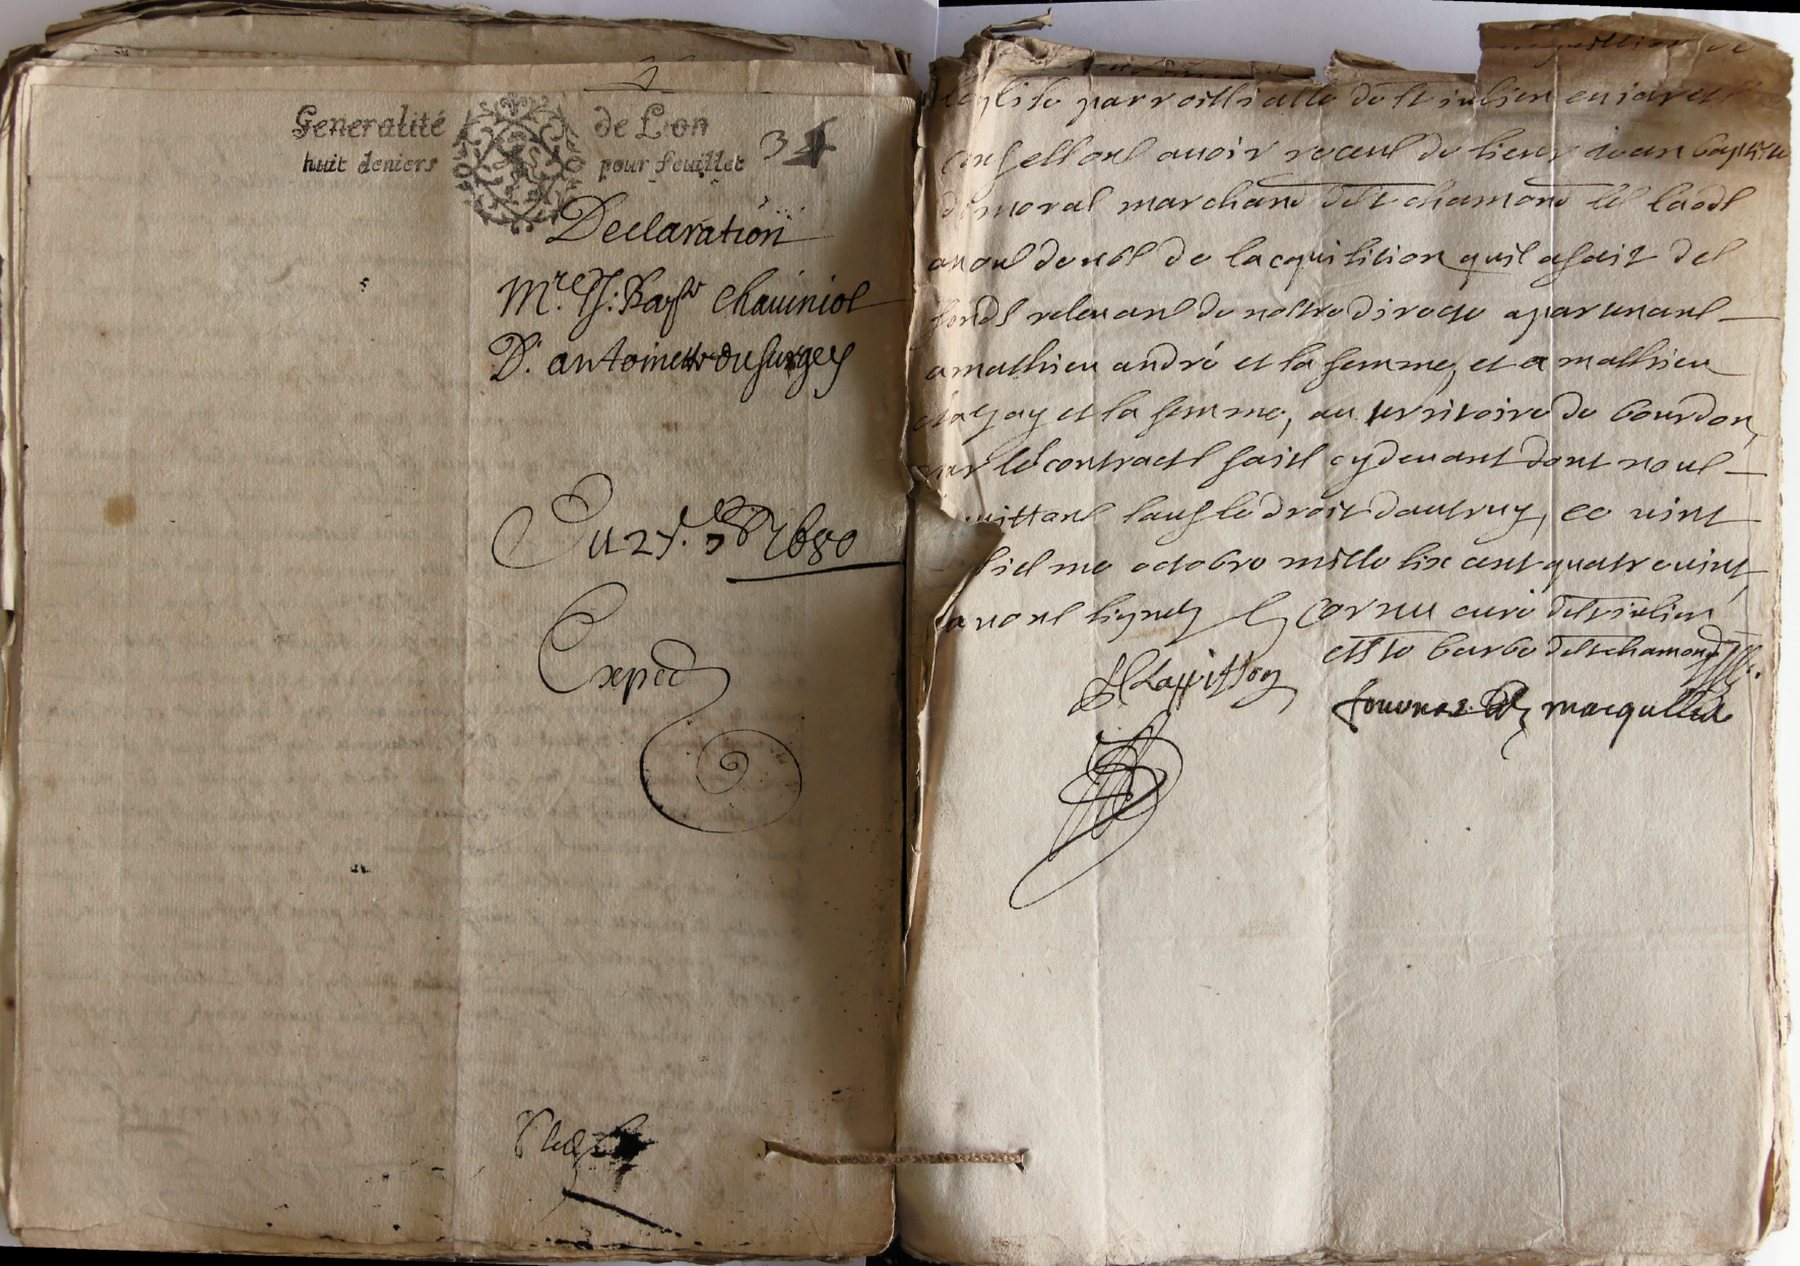 Generalité de Lyon
huit deniers pour feuillet
34
Declaration
Mr. J: Bapt chauiniol
D. antoinette du surgey
Du 25. 8bre 1680
Exped
de
leglise parroissialle de st iulien en iarest
confessons auoir receus de sieur iean baptiste
dimoral marchand de st chamond les laods
a nous deubs de lacquisition quil a fait des
fonds releuans de nostre directe apartenans
a mathieu andré et sa femme, et a mathieu
et sa femme, au territoire de bourdon,
par les contracts faits cy deuant dont nous
quittons sauf le droit dautruy, ce vint
siesme octobre mille six cent quatre vint,
auons signez Cornu curé de st iulien
barbe de st chamond